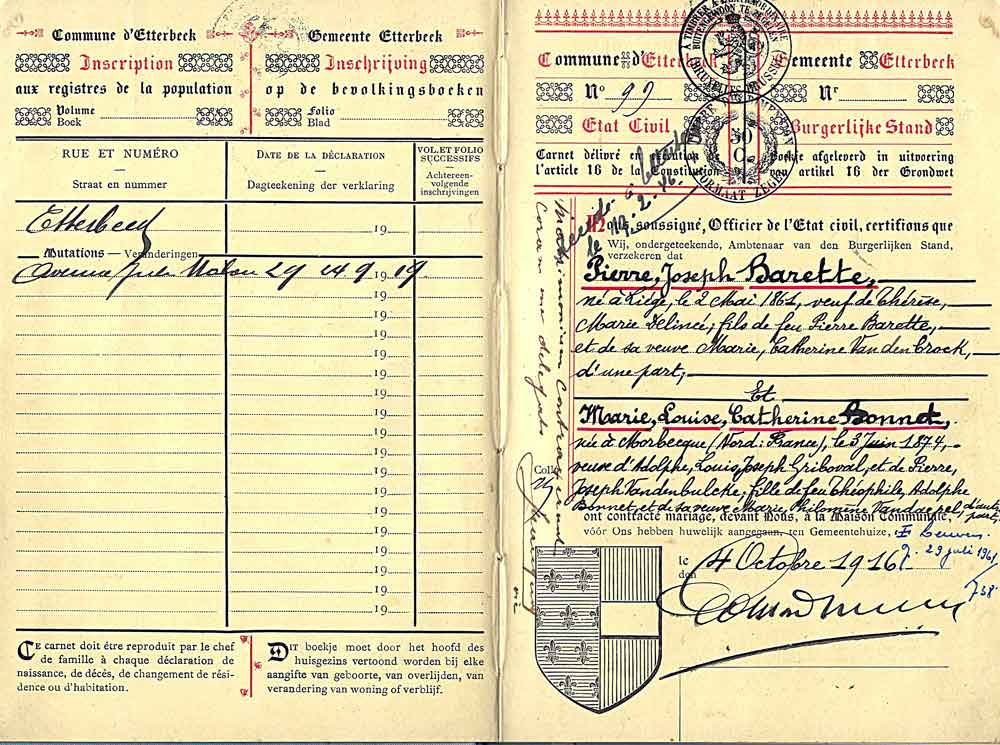 Commune d'Etterbeek
Inscription
aux registres de la population
Volume
Boek
Gemeente Etterbeek
Inschrijving
op de bevolkingsboeken
Folio
Blad
RUE ET NUMÉRO
Straat en nummer
DATE DE LA DÉCLARATION
Dagteekening der verklaring
VOL. ET FOLIO
SUCCESSIFS
Achtereen-
volgende
inschrijvingen
Etterbeek 19
Mutations — Veranderingen
Avenue Jules Malou 29 14 9 1919
19
19
19
19
19
19
19
19
19
19
19
19
19
19
19
19
19
CE carnet doit être reproduit par le chef
de famille à chaque déclaration de
naissance, de décès, de changement de rési-
dence ou d'habitation.
DIT boekje moet door het hoofd des
huisgezins vertoond worden bij elke
aangifte van geboorte, van overlijden, van
verandering van woning of verblijf.
Commune d'Etterbeek
Gemeente Etterbeek
No 99
Nr
Etat Civil
Burgerlijke Stand
Carnet délivré en exécution de
l'article 16 de la Constitution
Boekje afgeleverd in uitvoering
van artikel 16 der Grondwet
Nous, soussigné, Officier de l'Etat civil, certifions que
Wij, ondergeteekende, Ambtenaar van den Burgerlijken Stand,
verzekeren dat
Pierre, Joseph Barette,
né à Liége, le 2 Mai 1861, veuf de Thérèse,
Marie Delincé; fils de feu Pierre Barette,
et de sa veuve Marie, Catherine Van den Crock,
d'une part;
Et
Marie, Louise, Catherine Bonnet,
née à Morbecque (Nord: France), le 3 Juin 1874,
veuve d'Adolphe, Louis, Joseph Griboval, et de Pierre,
Joseph Vandenbulcke; fille de feu Théophile, Adolphe
Bonnet, et de sa veuve Marie, Philomène Vandaepel, d'autre
part,
ont contracté mariage, devant Nous, à la Maison Communale,
vóór Ons hebben huwelijk aangegaan, ten Gemeentehuize,
29 juli 1961
738
le
den
4 Octobre 1916
Matrimonium
coram me delegato